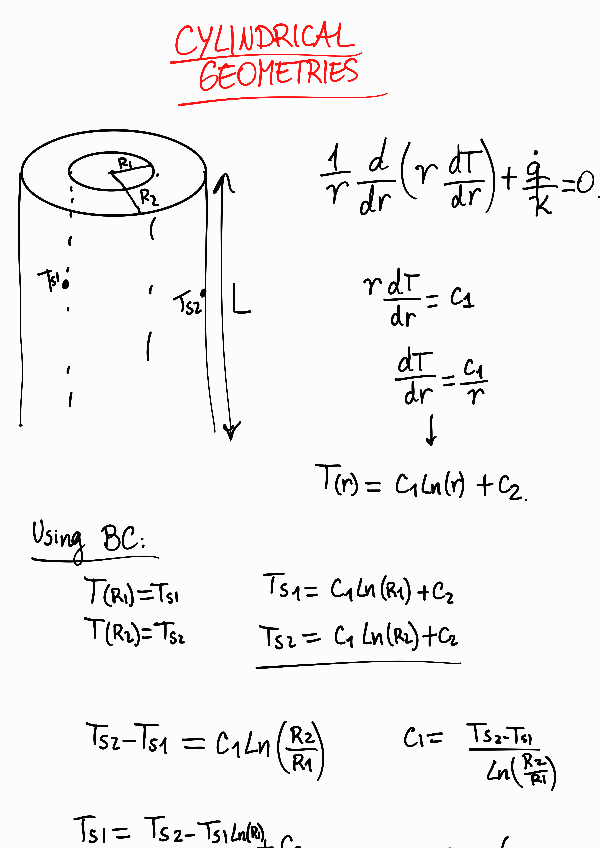 CYLINDRICAL
GEOMETRIES
R1
R2
Ts1
Ts2
L
1/r d/dr (r dT/dr) + q̇/k = 0.
r dT/dr = C1
dT/dr = C1/r
↓
T(r) = C1 Ln(r) + C2.
Using BC:
T(R1)=Ts1 Ts1 = C1 Ln(R1) + C2
T(R2)=Ts2 Ts2 = C1 Ln(R2) + C2
Ts2 - Ts1 = C1 Ln(R2/R1) C1 = Ts2-Ts1 / Ln(R2/R1)
Ts1 = Ts2 - Ts1 Ln(R1) +